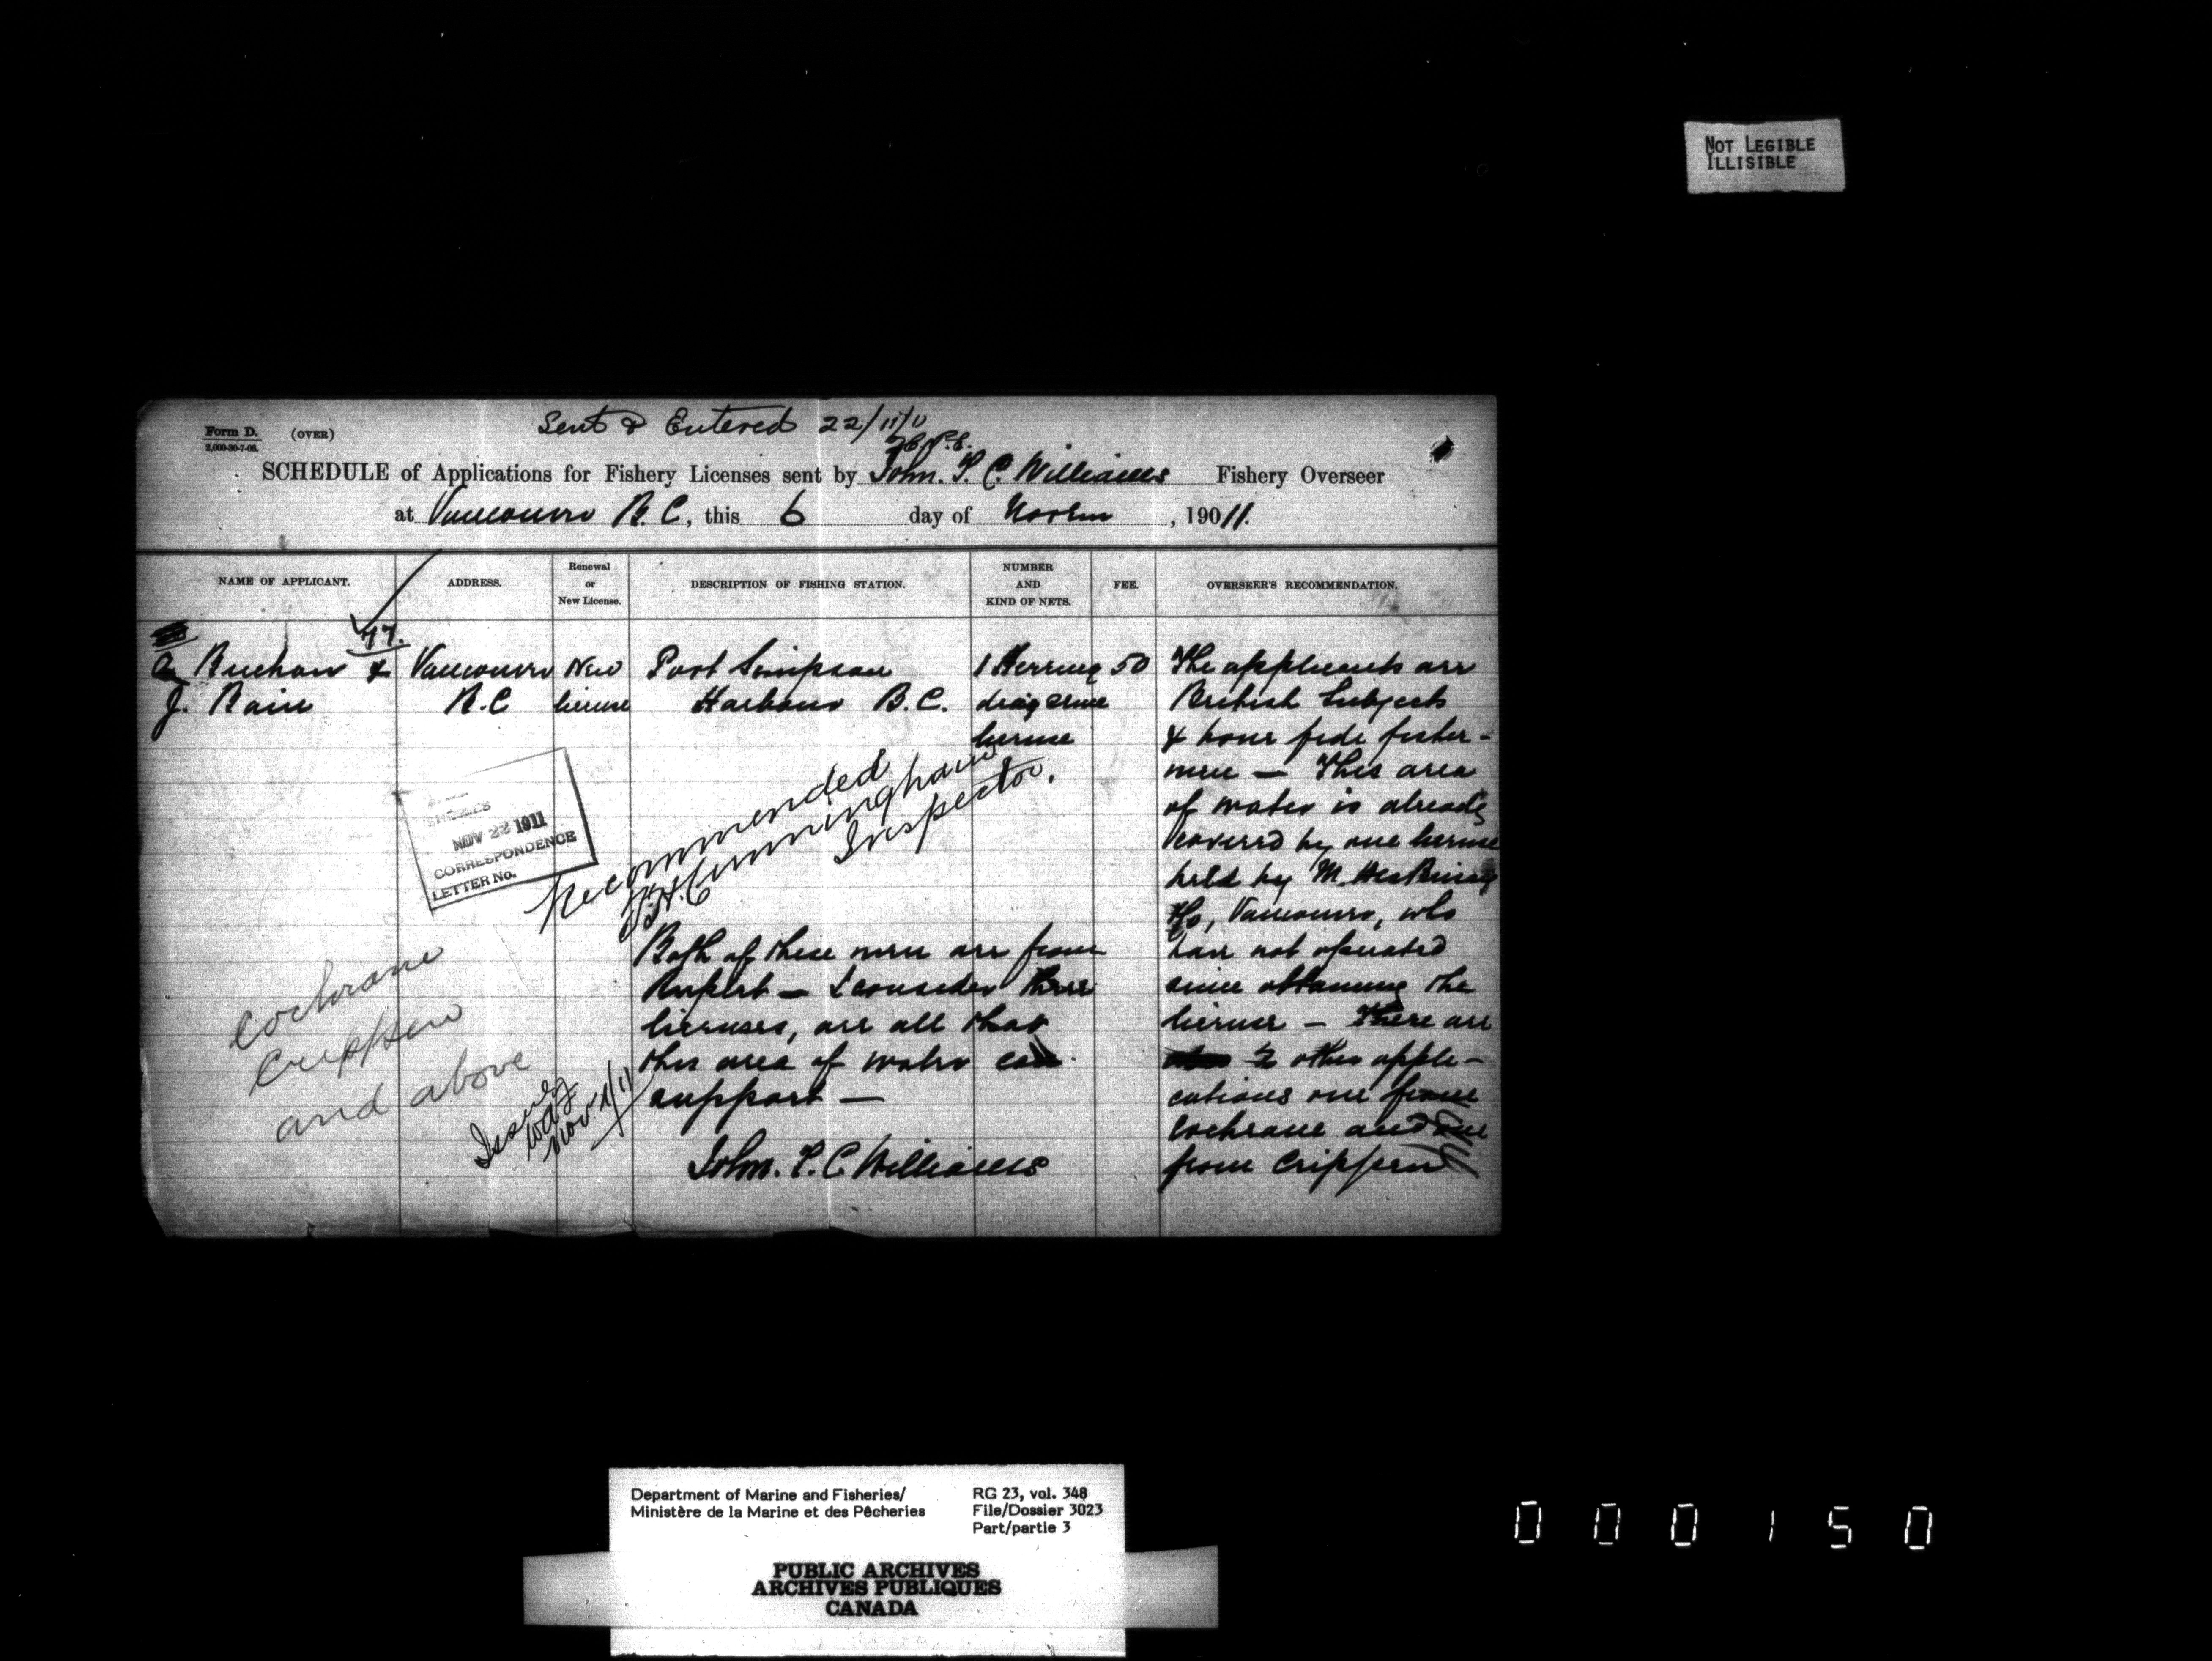 NOT LEGIBLE
ILLISIBLE
Sent & Entered 22/11/11
Form D. (OVER)
2,000-30-7-08.
SCHEDULE of Applications for Fishery Licenses sent by John. T. C. Williams Fishery Overseer
at Vancouver B.C, this 6 day of Novbm, 190 11.
NAME OF APPLICANT.
ADDRESS.
Renewal
or
New License.
DESCRIPTION OF FISHING STATION.
NUMBER
AND
KIND OF NETS.
FEE.
OVERSEER'S RECOMMENDATION.
77.
Buchan &
J. Bain
Vancouver
B.C
New
license
Port Simpson
Harbour B.C.
1 Herring
drag seine
license
50
The applicants are
British Subjects
& bona fide fisher-
men — This area
of water is already
covered by one license
held by M.
Co, Vancouver, who
have not operated
since obtaining the
license — There are
2 other appli-
cations one from
Cochrane and one
from Crippen
NOV 22 1911
CORRESPONDENCE
LETTER No.
Recommended
Cunningham
Inspector.
Both of these men are from
Rupert — I consider three
licenses, are all that
this area of water can
support —
John. T. C Williams
Cochrane
Crippen
and above
Issued
Nov /11
Department of Marine and Fisheries/
Ministère de la Marine et des Pêcheries
RG 23, vol. 348
File/Dossier 3023
Part/partie 3
PUBLIC ARCHIVES
ARCHIVES PUBLIQUES
CANADA
000150